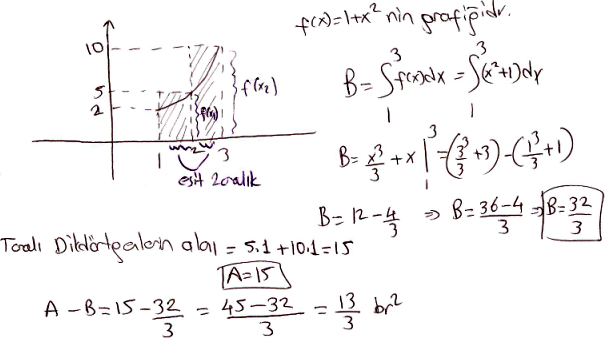 f(x)=1+x² nin grafiğidir.
10
5
2
f(x₁)
f(x₂)
1 2 3
eşit 2 aralık
B = ∫₁³ f(x)dx = ∫₁³ (x²+1)dx
B = x³/3 + x |₁³ = (3³/3 + 3) - (1³/3 + 1)
B = 12 - 4/3 ⇒ B = 36-4/3 ⇒ B = 32/3
Taralı Dikdörtgenlerin alanı = 5.1 + 10.1 = 15
A = 15
A - B = 15 - 32/3 = 45-32/3 = 13/3 br²